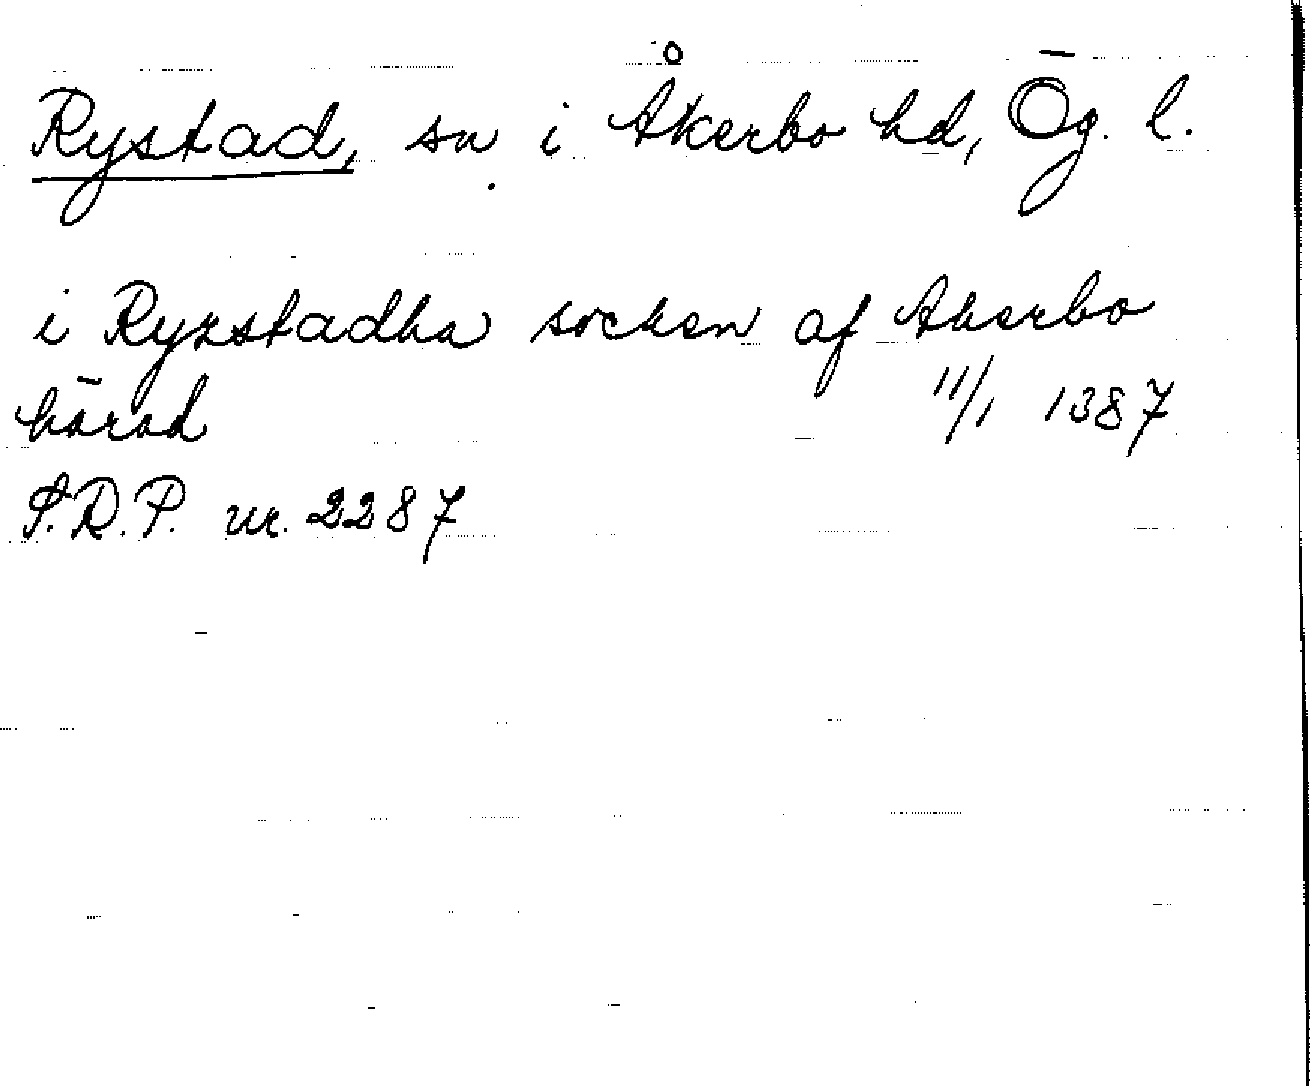 Rystad, sn i Åkerbo hd, Ög. l.
i Ryzstadha socken af Akerbo
härad 11/1 1387
S.R.P. nr. 2287